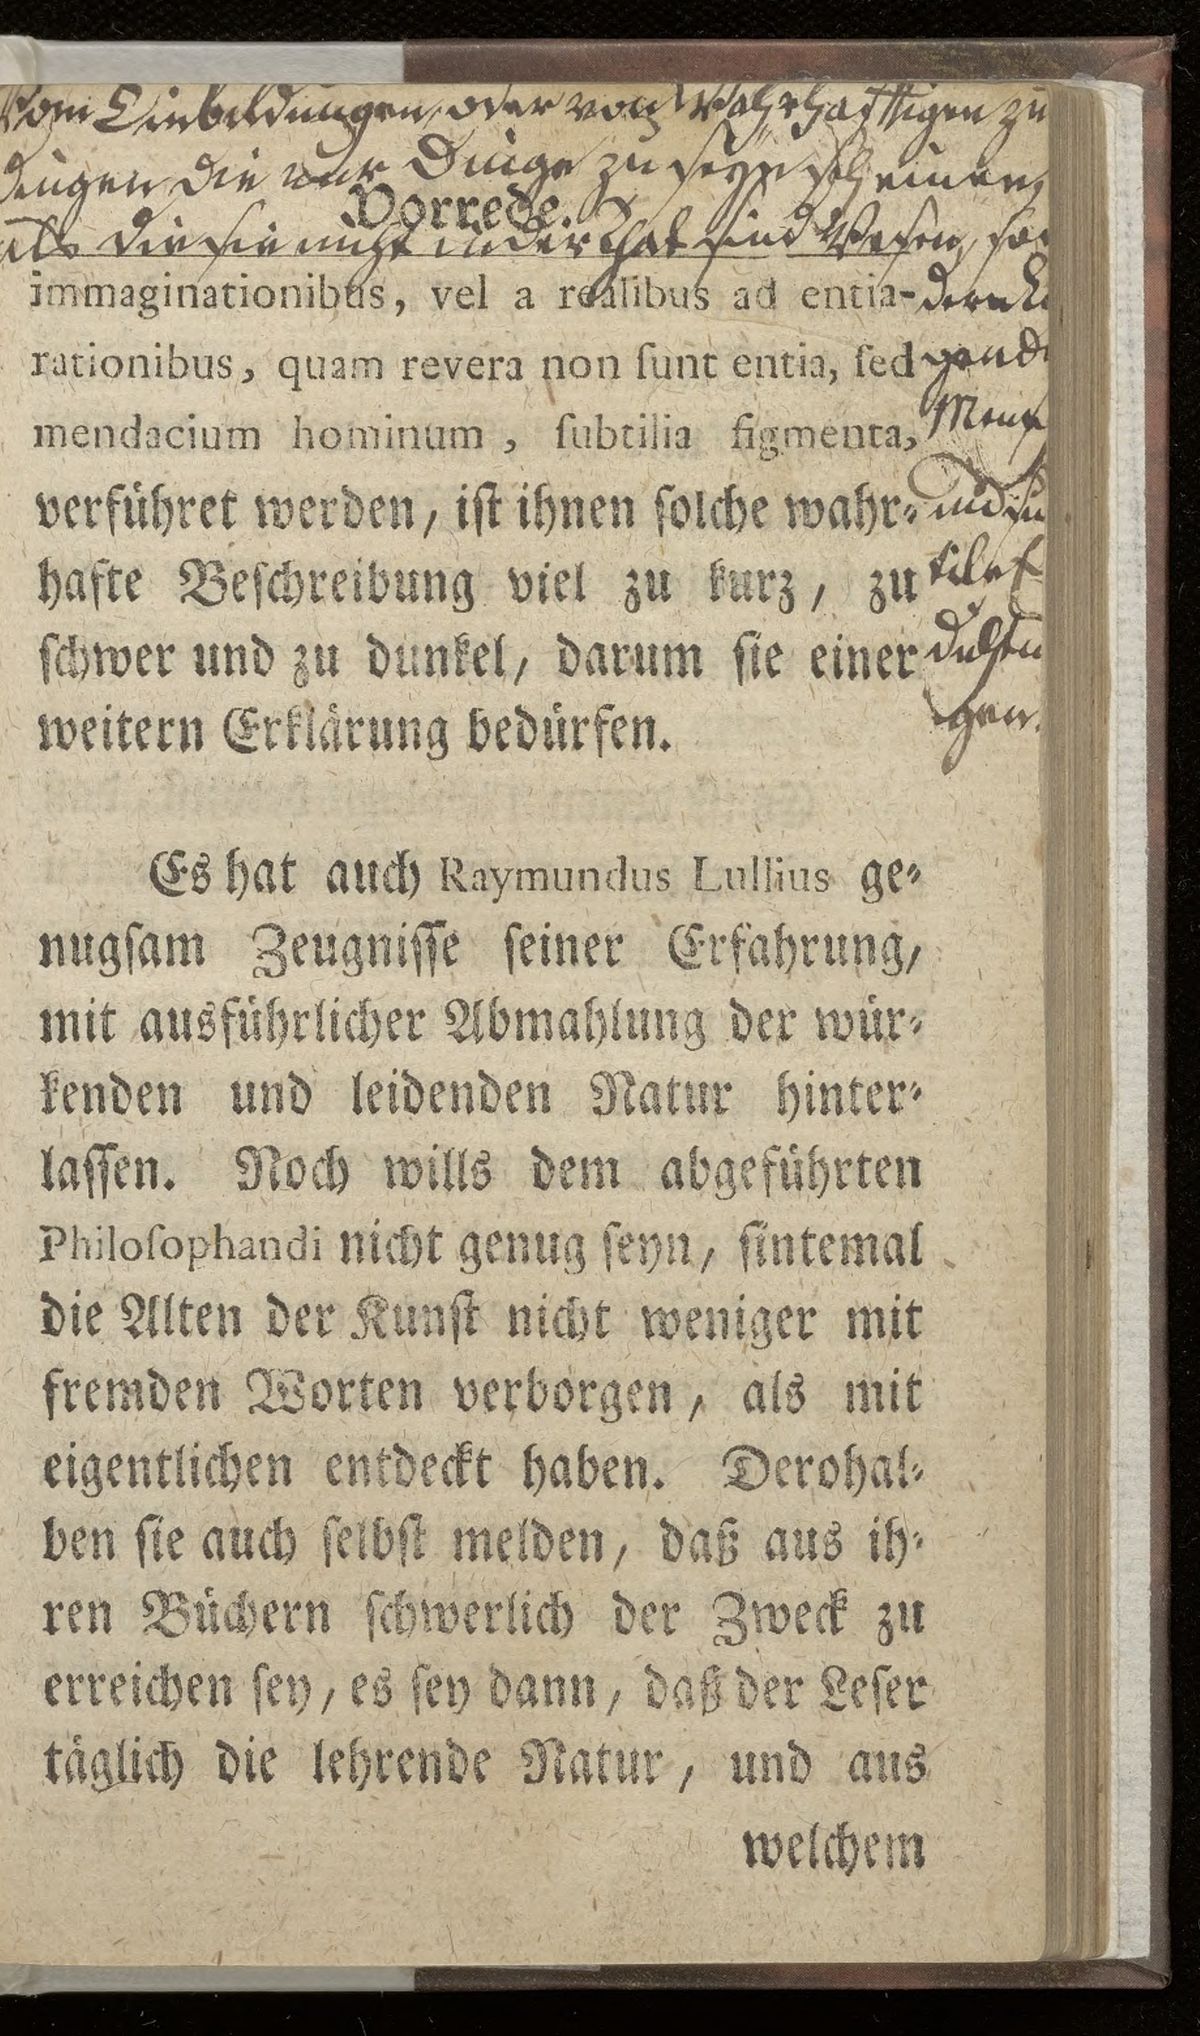 Vom Einbildungen, oder von Wahrhafftigen zu
dingen die nur Dinge zu seyn scheinen,
Vorrede.
als die sie nicht in der That sind Wesen, son
immaginationibus, vel a realibus ad entia-
dern Lü
rationibus, quam revera non ſunt entia, ſed
gend
mendacium hominum, ſubtilia figmenta,
Mensch
verführet werden, iſt ihnen ſolche wahr-
und su
hafte Beſchreibung viel zu kurz, zu
tile
ſchwer und zu dunkel, darum ſie einer
weitern Erklärung bedürfen.
gen.
Es hat auch Raymundus Lullius ge-
nugſam Zeugniſſe ſeiner Erfahrung,
mit ausführlicher Abmahlung der wür-
kenden und leidenden Natur hinter-
laſſen. Noch wills dem abgeführten
Philoſophandi nicht genug ſeyn, ſintemal
die Alten der Kunſt nicht weniger mit
fremden Worten verborgen, als mit
eigentlichen entdeckt haben. Derohal-
ben ſie auch ſelbſt melden, daß aus ih-
ren Büchern ſchwerlich der Zweck zu
erreichen ſey, es ſey dann, daß der Leſer
täglich die lehrende Natur, und aus
welchem